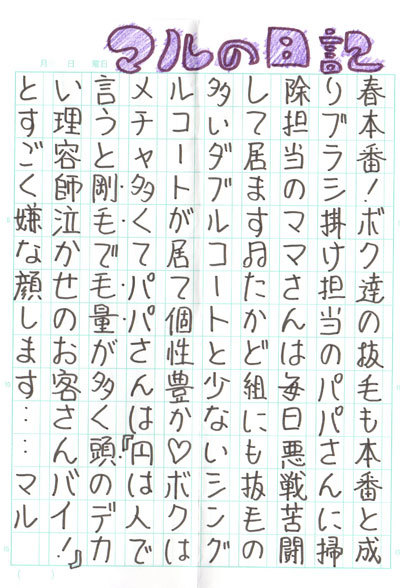 マルの日記
月 日 曜日
春本番！ボク達の抜毛も本番と成
りブラシ掛け担当のパパさんに掃
除担当のママさんは毎日悪戦苦闘
して居ます♬たかど組にも抜毛の
多いダブルコートと少ないシング
ルコートが居て個性豊か♡ボクは
メチャ多くてパパさんは『円は人で
言うと剛毛で毛量が多く頭のデカ
い理容師泣かせのお客さんバイ！』
とすごく嫌な顔します……マル